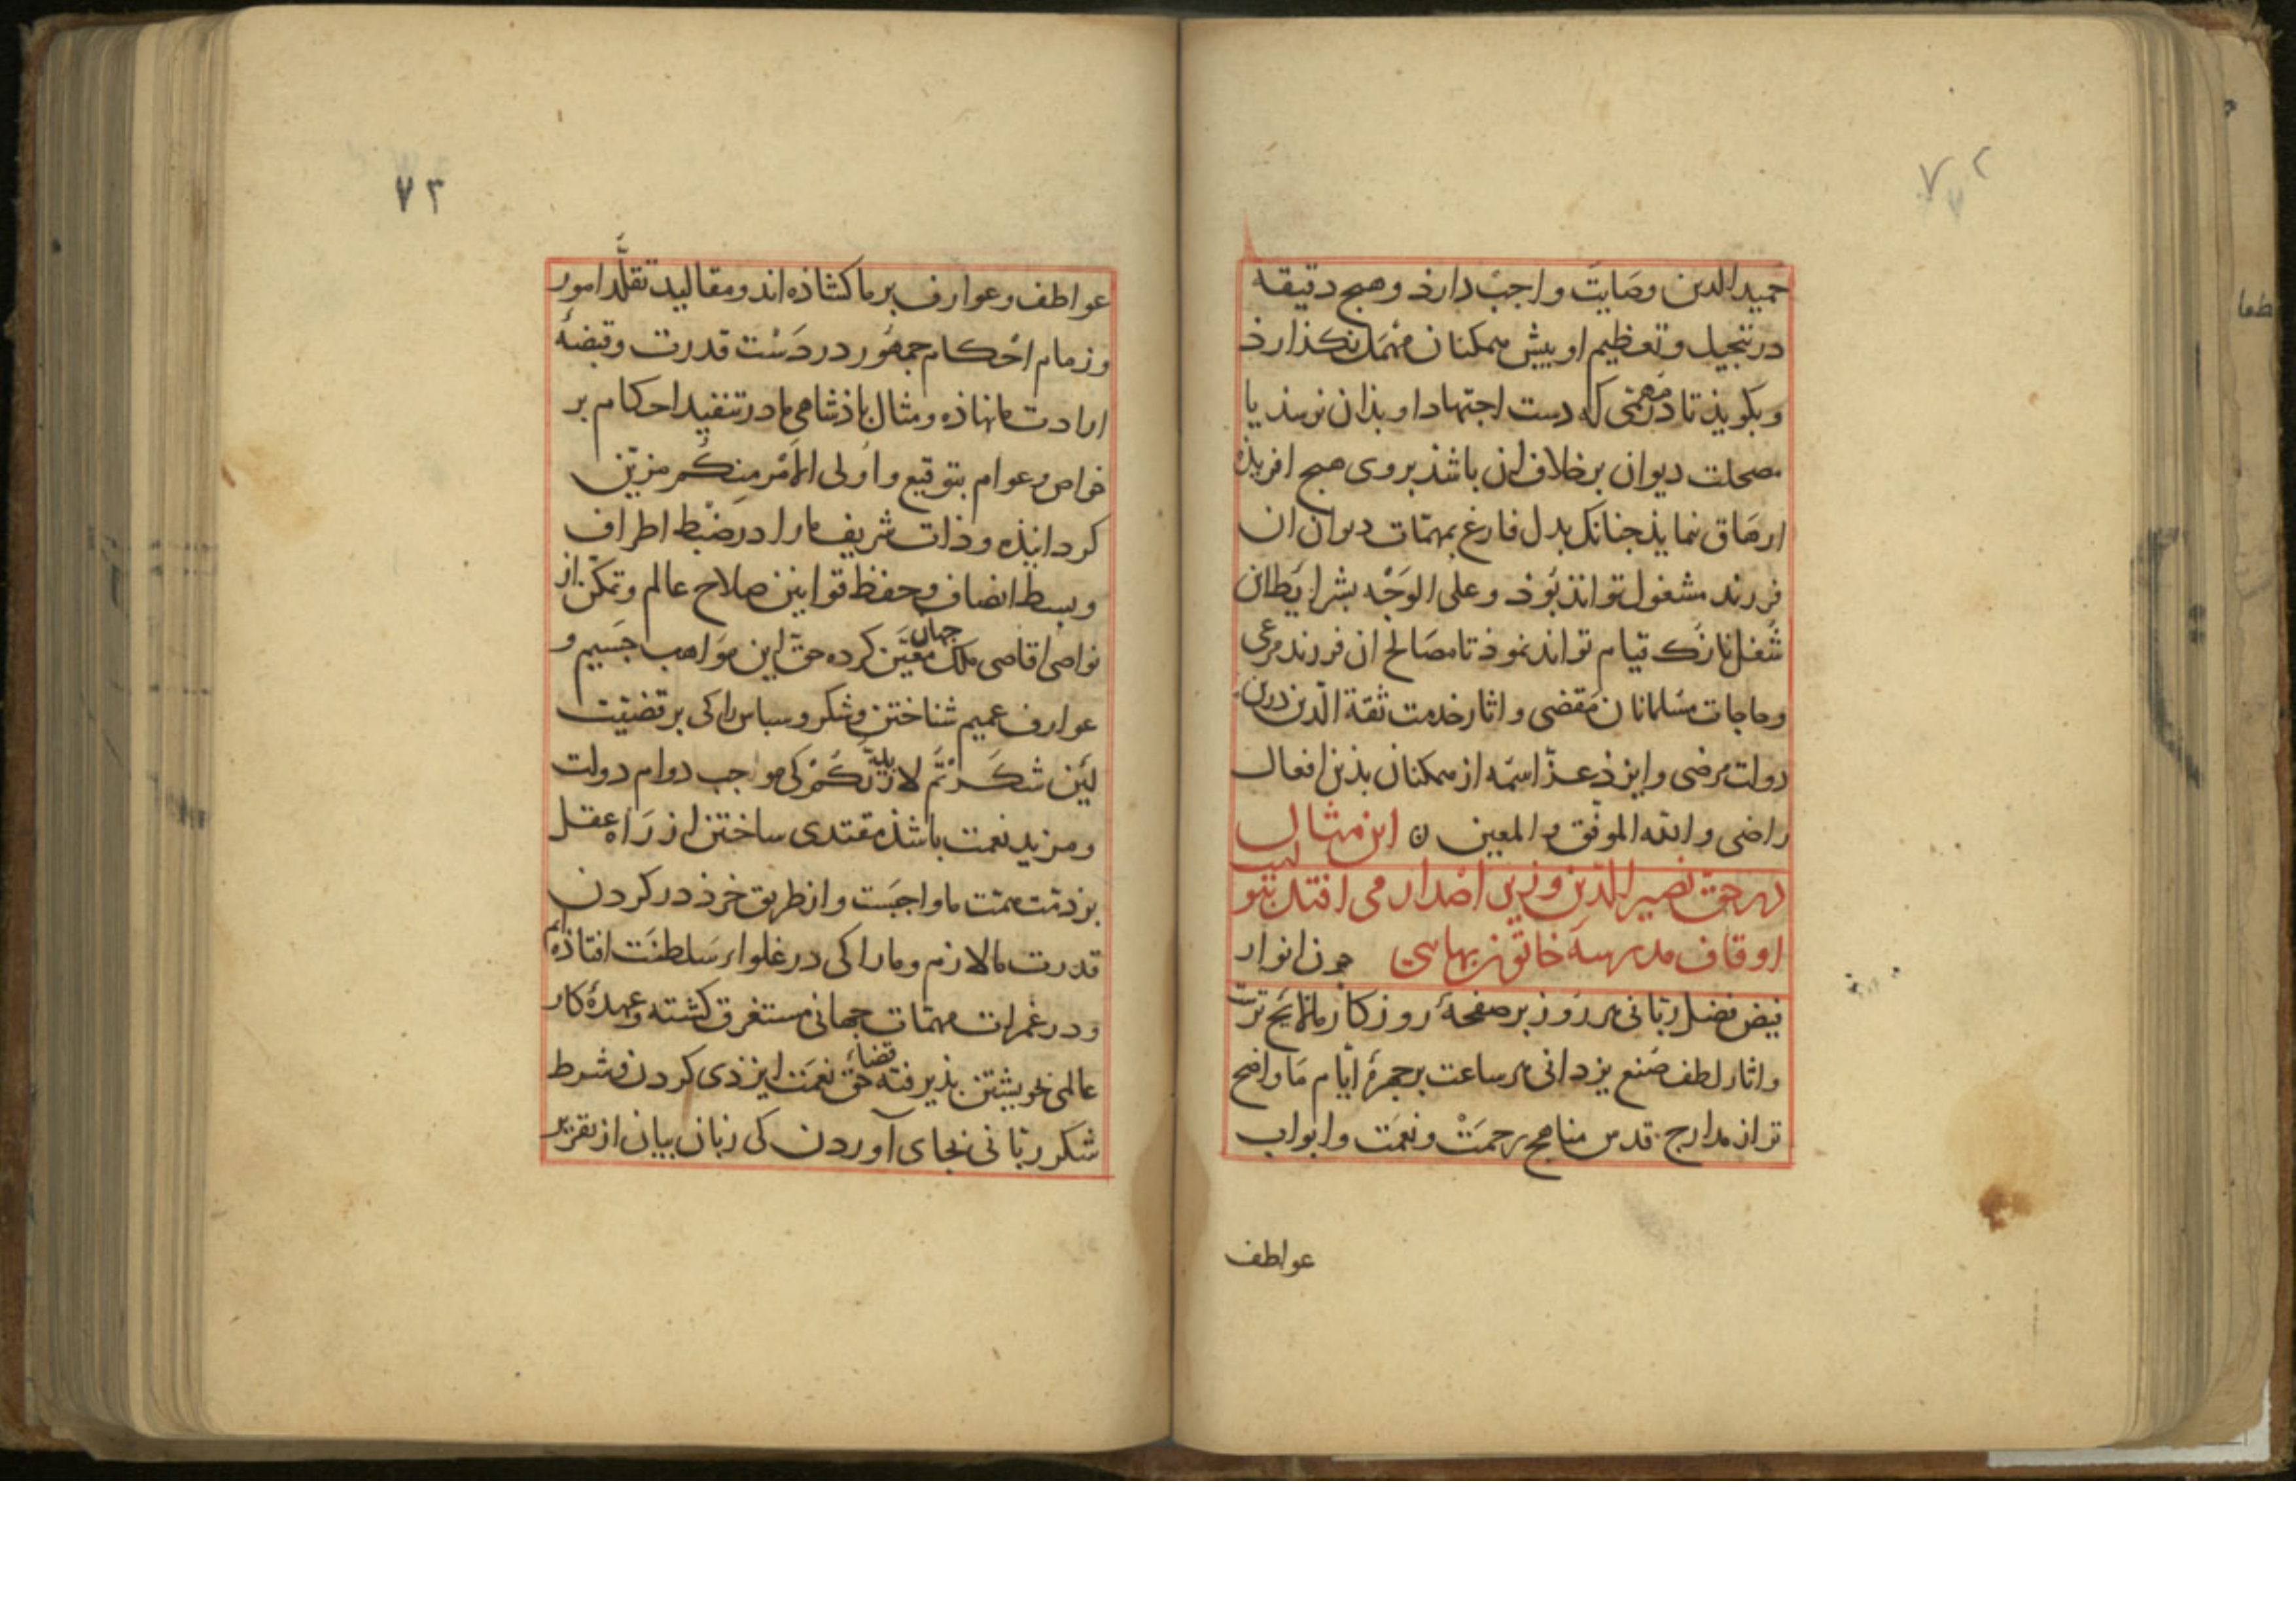 ۷۲
حمید الدین وصایت واجب دارذ و هیج دقیقه
در تبجیل و تعظیم او بیش ممکنان مهمل نکذارذ
و بکویذ تا در مهمی که دست اجتهاد او بذان نرسذ یا
مصحلت دیوان بر خلاف ان باشذ بروی هیج افریذه
ارهاق ننمایذ جنانک بدل فارغ بمهمّات دیوان ان
فرزند مشغول تواند بوذ و علی الوَجْه بشرایَط ان
شغل نازک قیام تواند نموذ تا مصالح ان فرزند مرعی
و حاجات مسلمانان مقضی و اثار خدمت ثقة الدّین درین
دولت مرضی و ایزذ عزّ اسمه از ممکنان بذین افعال
راضی و الله الموفّق و المعین ن این مثال
در حقّ نصیر الدّین وزیر اصدار می افتد بتولیت
اوقاف مدرسهٔ خاتون بهاسی جون انوار
فیض فضل ربّانی هر روز بر صفحهٔ روزکار ما لایَح ترست
و اثار لطف صُنع یزدانی هر ساعت بر جهرهٔ ایّام مَا واضح
تر از مدارج قدس مناهج رحمَتْ و نعمَت و ابواب
عواطف
۷۳
عواطف و عوارف بر ما کشاذه اند و مقالید تقلّد امور
و زمام احْکام جمهُور در دَسْت قدرت و قبضهٔ
ارادت ما نهاذه و مثال باذشاهی ما در تنفید احکام بر
خواص و عوام بتوقیع و اُولی الاَمْرِ مِنکُم مزیّن
کردانیذه و ذات شریف ما را در ضبْط اطراف
و بسط انصاف و حفظ قوانین صلاح عالم و تمکّن از
نواصی اقاصی ملک جهان معیَّن کرده حقّ این مَوَاهب جَسیم و
عوارف عمیم شناختن و شکر و سباس را کی بر قضیّت
لَئِن شَکَرْتُم لازیدَنّکُمْ کی مواجب دوام دولت
و مزید نعمت باشذ مقتدی ساختن از رَاه عقل
بر ذمّت همّت ما واجبَست و از طریق خرذ در کردن
قدرت ما لازم و ما را کی در غلواء سَلطنَت افتاذه ایم
و در غمرات مهمّات جهانی مستغرق کشته و عهدهٔ کار
عالمی بخویشتن بذیرفته قضاءِ حقّ نعمَت ایزذی کردن و شرط
شکر ربّانی بجای آوردن کی زبان بیان از تقریر